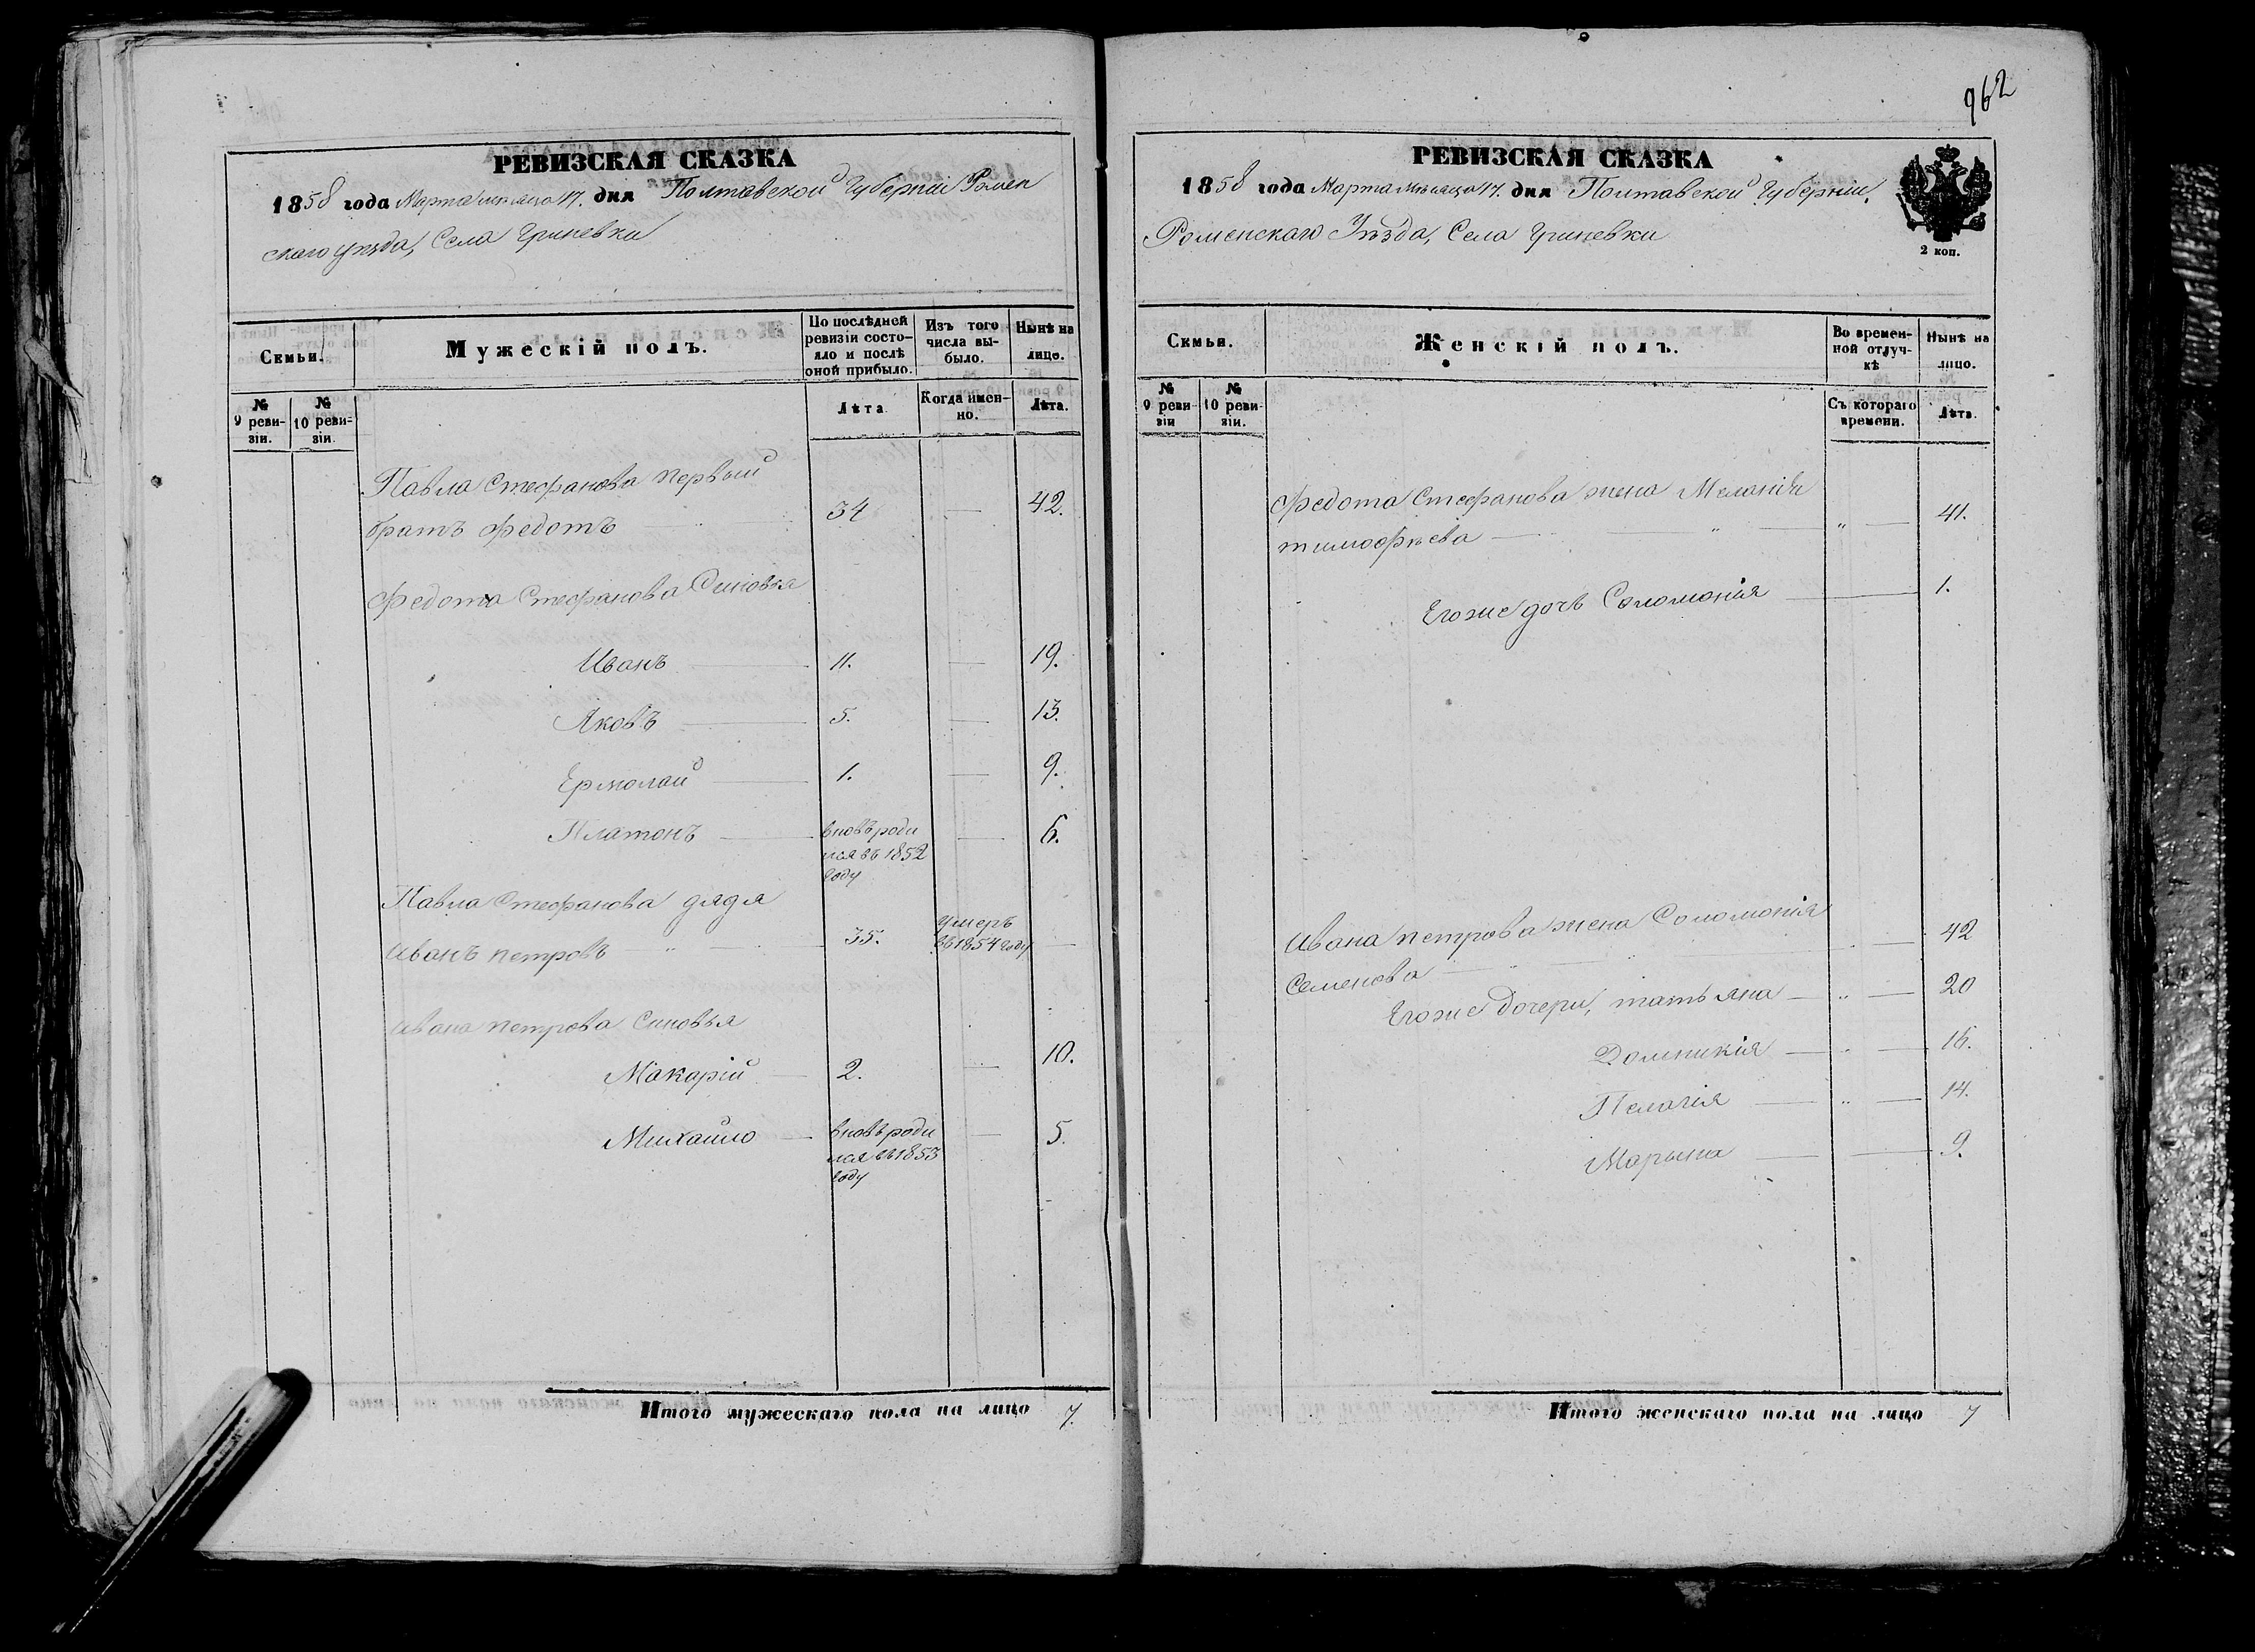 962
РЕВИЗСКАЯ СКАЗКА
1858 года Марта месяца 17. дня Полтавской Губерніи Ромен
скаго уѣзда, Села Гриневки
Семьи.
Мужескій полъ.
По послѣдней ревизіи состояло и послѣ оной прибыло.
Изъ того числа выбыло.
Нынѣ на лицо.
№ 9 ревизіи.
№ 10 ревизіи.
Лѣта
Когда именно.
Лѣта.
Павла Стефанова первый
братъ Федотъ 34 — 42.
Федота Стефанова Синовья
Иванъ — 11. — 19.
Яковъ — 5. — 13.
Ермолай — 1. — 9.
Платонъ — вновь роди — 6.
лся въ 1852
году
Павла Стефанова дядя
Иванъ Петровъ — " — 35. умеръ въ 1854 году —
Ивана Петрова Синовья
Макарій — 2. — 10.
Михайло — вновь роди — 5.
лся въ 1853
году
Итого мужескаго пола на лицо 7.
РЕВИЗСКАЯ СКАЗКА
1858 года Марта месяца 17. дня Полтавской Губерніи,
Роменскаго Уѣзда, Села Гриневки
2 коп.
Семьи.
Женскій полъ.
Во временной отлучкѣ
Нынѣ на лицо.
№ 9 ревизіи
№ 10 ревизіи.
Съ котораго времени.
Лѣта.
Федота Стефанова жена Меланія
тимофѣева — " — " — 41.
Егоже дочь Соломонія — 1.
Ивана Петрова жена Соломонія
Семенова — " — " — 42
Егоже дочери, татьяна — " — 20
Домникія — " — 16.
Пелагія — " — 14.
Марьина — 9.
Итого женскаго пола на лицо 7